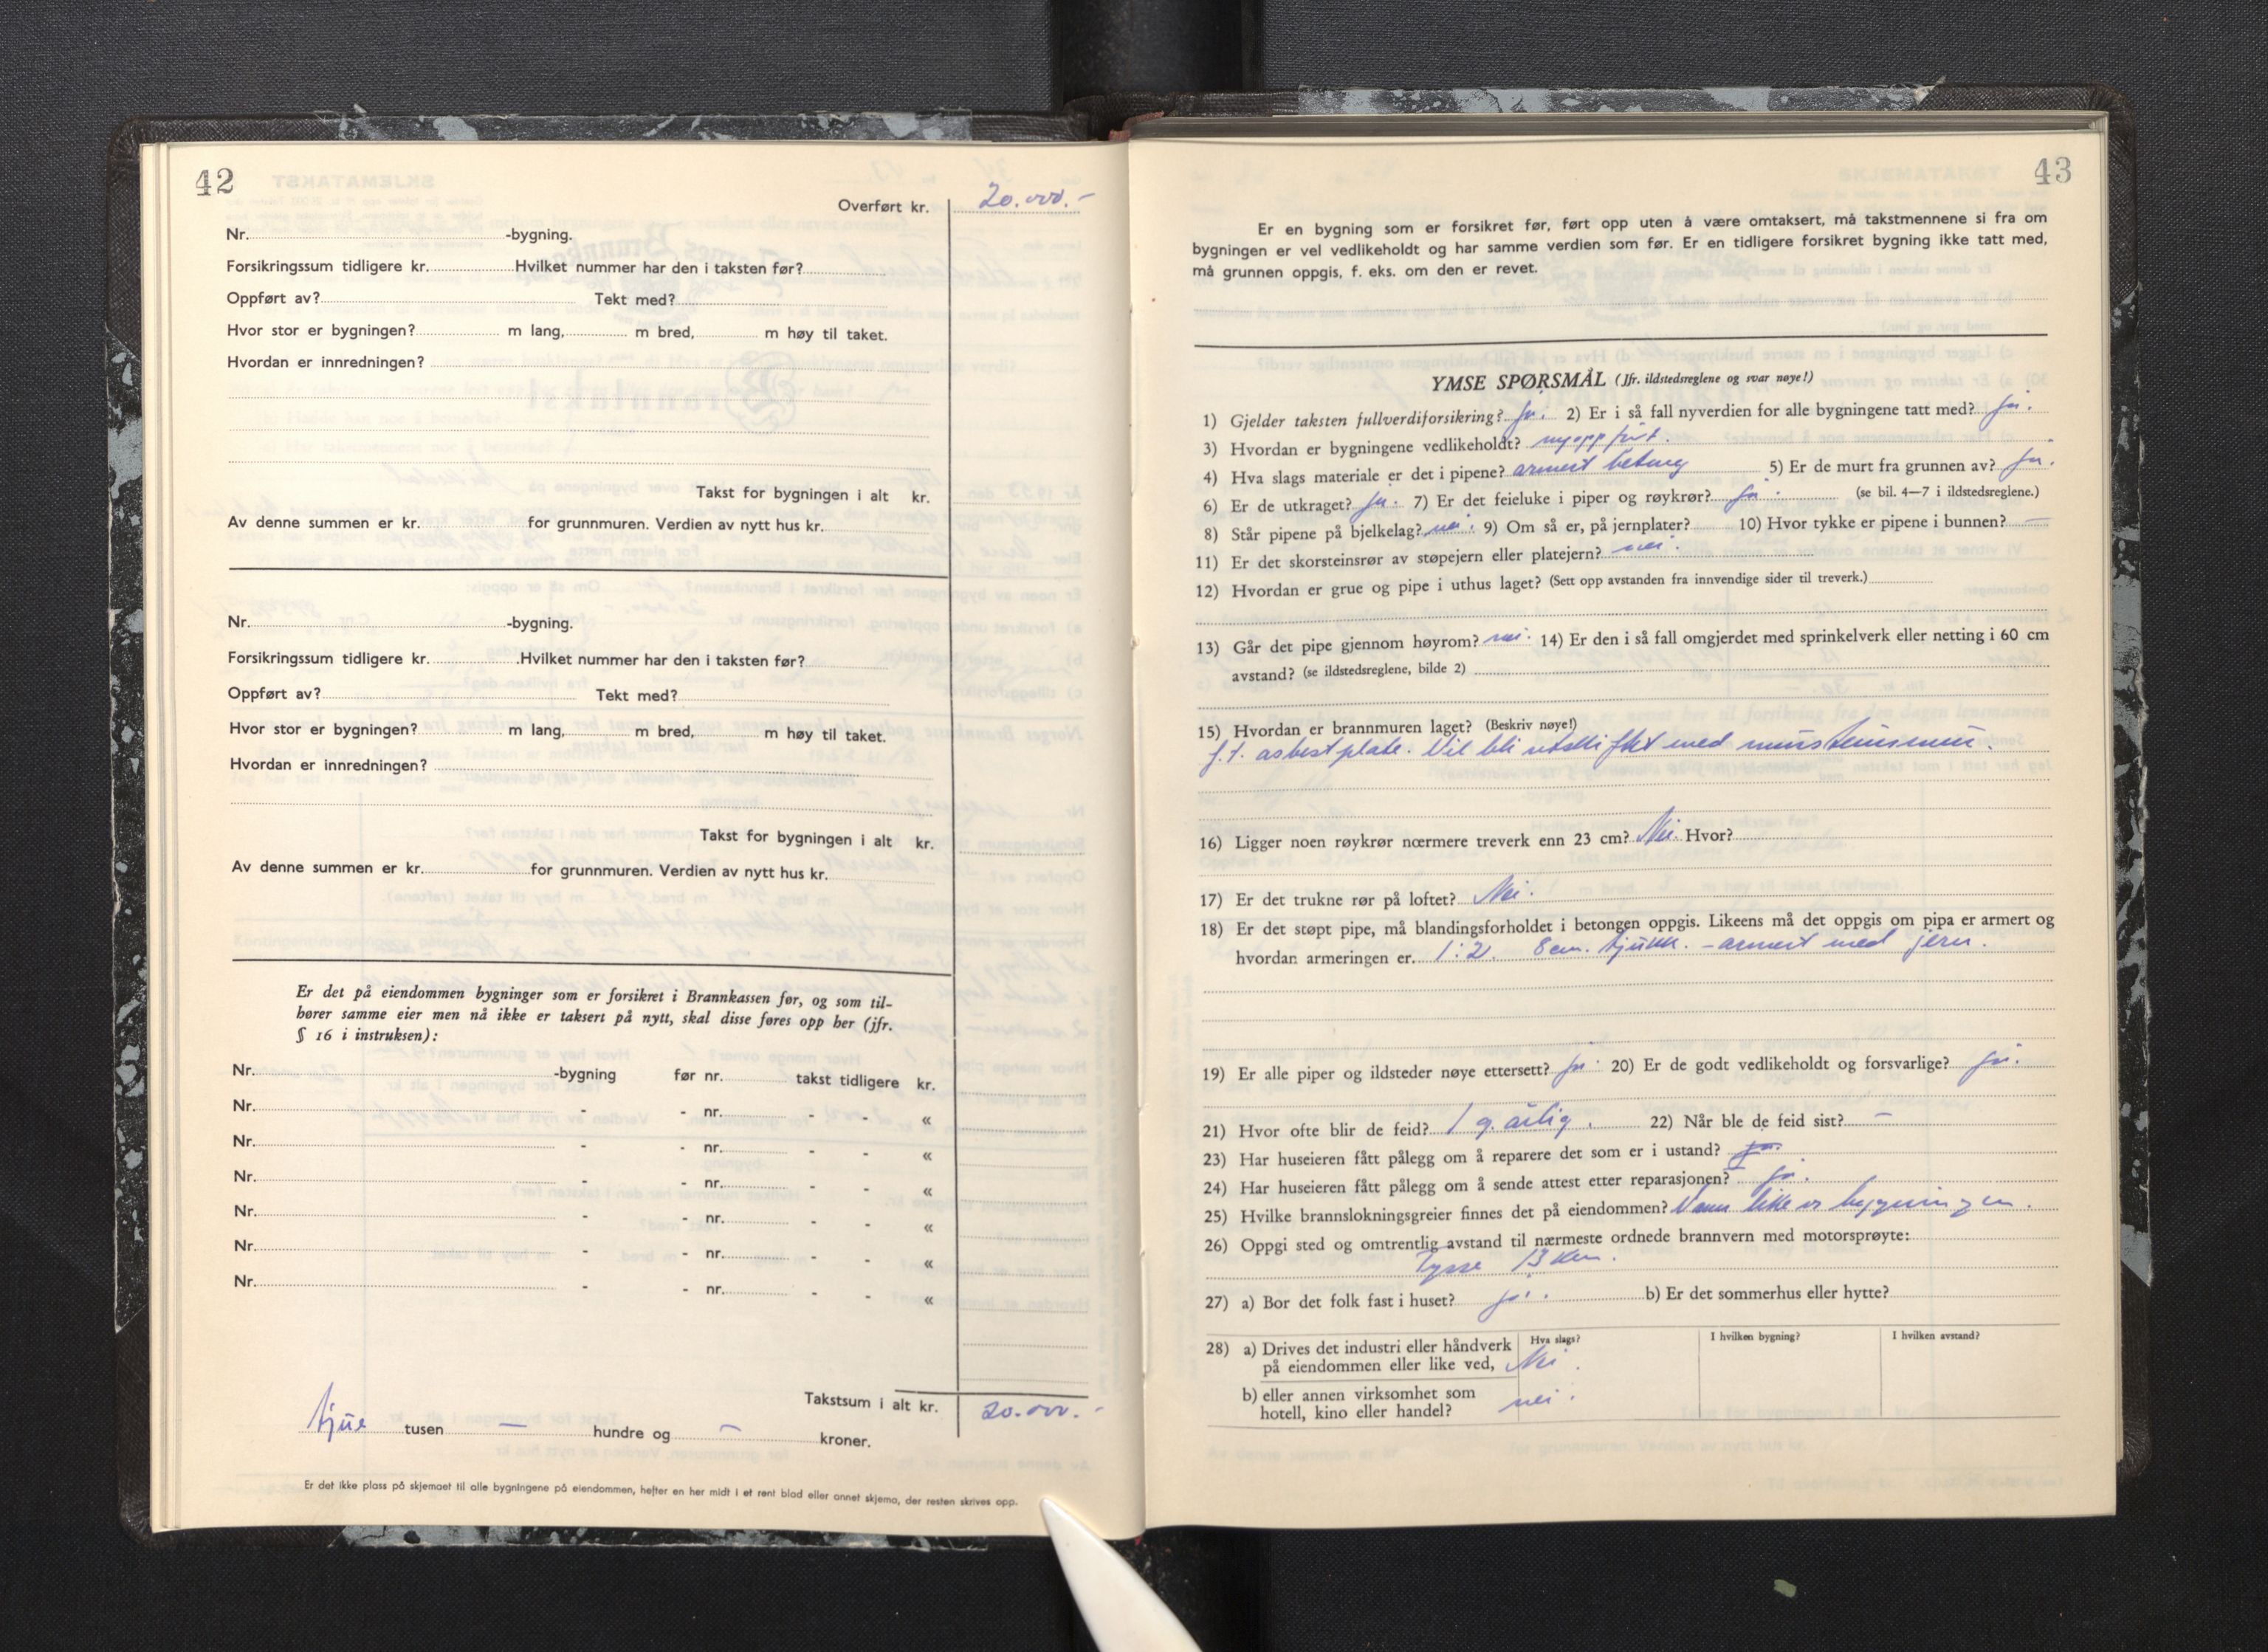 42
Overført kr. 20.000.-
Nr. -bygning.
Forsikringssum tidligere kr. Hvilket nummer har den i taksten før?
Oppført av? Tekt med?
Hvor stor er bygningen? m lang, m bred, m høy til taket.
Hvordan er innredningen?
Takst for bygningen i alt kr.
Av denne summen er kr. for grunnmuren. Verdien av nytt hus kr.
Nr. -bygning.
Forsikringssum tidligere kr. Hvilket nummer har den i taksten før?
Oppført av? Tekt med?
Hvor stor er bygningen? m lang, m bred, m høy til taket.
Hvordan er innredningen?
Takst for bygningen i alt kr.
Av denne summen er kr. for grunnmuren. Verdien av nytt hus kr.
Er det på eiendommen bygninger som er forsikret i Brannkassen før, og som til-
hører samme eier men nå ikke er taksert på nytt, skal disse føres opp her (jfr.
§ 16 i instruksen):
Nr. -bygning før nr. takst tidligere kr.
Nr. - - nr. - - «
Nr. - - nr. - - «
Nr. - - nr. - - «
Nr. - - nr. - - «
Nr. - - nr. - - «
Nr. - - nr. - - «
Takstsum i alt kr. 20.000.-
tjue tusen — hundre og — kroner.
Er det ikke plass på skjemaet til alle bygningene på eiendommen, hefter en her midt i et rent blad eller annet skjema, der resten skrives opp.
43
Er en bygning som er forsikret før, ført opp uten å være omtaksert, må takstmennene si fra om
bygningen er vel vedlikeholdt og har samme verdien som før. Er en tidligere forsikret bygning ikke tatt med,
må grunnen oppgis, f. eks. om den er revet.
YMSE SPØRSMÅL (Jfr. ildstedsreglene og svar nøye!)
1) Gjelder taksten fullverdiforsikring? ja. 2) Er i så fall nyverdien for alle bygningene tatt med? ja.
3) Hvordan er bygningene vedlikeholdt? nyoppført.
4) Hva slags materiale er det i pipene? armert betong 5) Er de murt fra grunnen av? ja.
6) Er de utkraget? ja. 7) Er det feieluke i piper og røykrør? ja. (se bil. 4—7 i ildstedsreglene.)
8) Står pipene på bjelkelag? nei. 9) Om så er, på jernplater? 10) Hvor tykke er pipene i bunnen? —
11) Er det skorsteinsrør av støpejern eller platejern? nei.
12) Hvordan er grue og pipe i uthus laget? (Sett opp avstanden fra innvendige sider til treverk.)
13) Går det pipe gjennom høyrom? nei. 14) Er den i så fall omgjerdet med sprinkelverk eller netting i 60 cm
avstand? (se ildstedsreglene, bilde 2)
15) Hvordan er brannmuren laget? (Beskriv nøye!)
f.t. asbestplate. Vil bli utskiftet med mursteinsmur.
16) Ligger noen røykrør nærmere treverk enn 23 cm? Nei. Hvor?
17) Er det trukne rør på loftet? Nei.
18) Er det støpt pipe, må blandingsforholdet i betongen oppgis. Likeens må det oppgis om pipa er armert og
hvordan armeringen er. 1:2. 8 cm. tjukk. - armert med jern.
19) Er alle piper og ildsteder nøye ettersett? ja. 20) Er de godt vedlikeholdt og forsvarlige? ja.
21) Hvor ofte blir de feid? 1 g. årlig. 22) Når ble de feid sist? —
23) Har huseieren fått pålegg om å reparere det som er i ustand? ja.
24) Har huseieren fått pålegg om å sende attest etter reparasjonen? ja.
25) Hvilke brannslokningsgreier finnes det på eiendommen? Vann like v bygningen.
26) Oppgi sted og omtrentlig avstand til nærmeste ordnede brannvern med motorsprøyte:
Tysse 13 km.
27) a) Bor det folk fast i huset? ja. b) Er det sommerhus eller hytte?
28) a) Drives det industri eller håndverk Hva slags? I hvilken bygning? I hvilken avstand?
på eiendommen eller like ved, Nei.
b) eller annen virksomhet som
hotell, kino eller handel? nei.